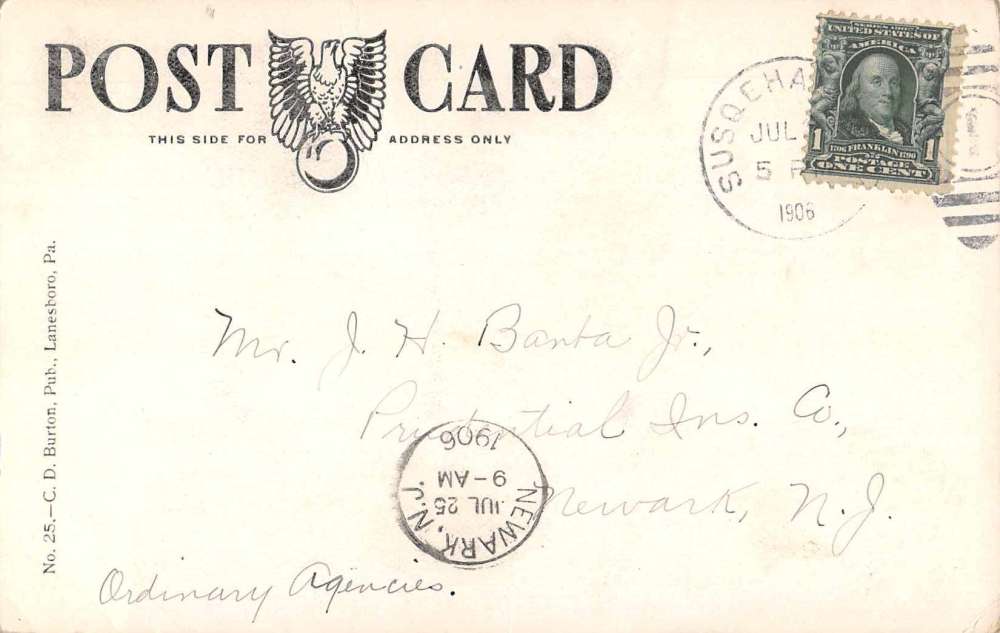 POST CARD
THIS SIDE FOR ADDRESS ONLY
SUSQEHA
JUL
5 P
1906
SERIES 1902
UNITED STATES OF
AMERICA
1 1706 FRANKLIN 1790 1
POSTAGE
ONE CENT
No. 25.—C. D. Burton, Pub., Lanesboro, Pa.
Mr. J. H. Banta Jr.,
Prudential Ins. Co.,
Newark, N. J.
NEWARK, N.J.
JUL 25
9-AM
1906
Ordinary Agencies.